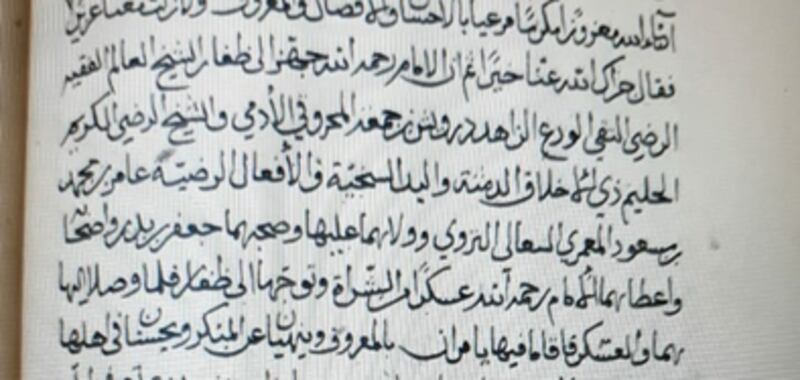 أبقاه الله معززا مكرما مرعيا بالاحسان والافضال والمعروف ولا زلت معنا عزيزا
فقال جزاك الله عنا خيرا ثم ان الامام رحمه الله جهز الى ظفار الشيخ العالم الفقيه
الرضي التقي الورع الزاهد درويش بن جمعة المحروقي الأدمي والشيخ الرضي الكريم
الحليم ذي الاخلاق الدمثة واليد السخية والأفعال الرضية عامر بن محمد
بن مسعود المعمري السعالي النزوي وولاهما عليها وصحبهما جعفر بن
واعطاهما الامام رحمه الله عسكرا من الشراة وتوجها الى ظفار فلما وصلا اليها
هما والعسكر فاقاما فيها يامران بالمعروف وينهيان عن المنكر ويحسنان في اهلها